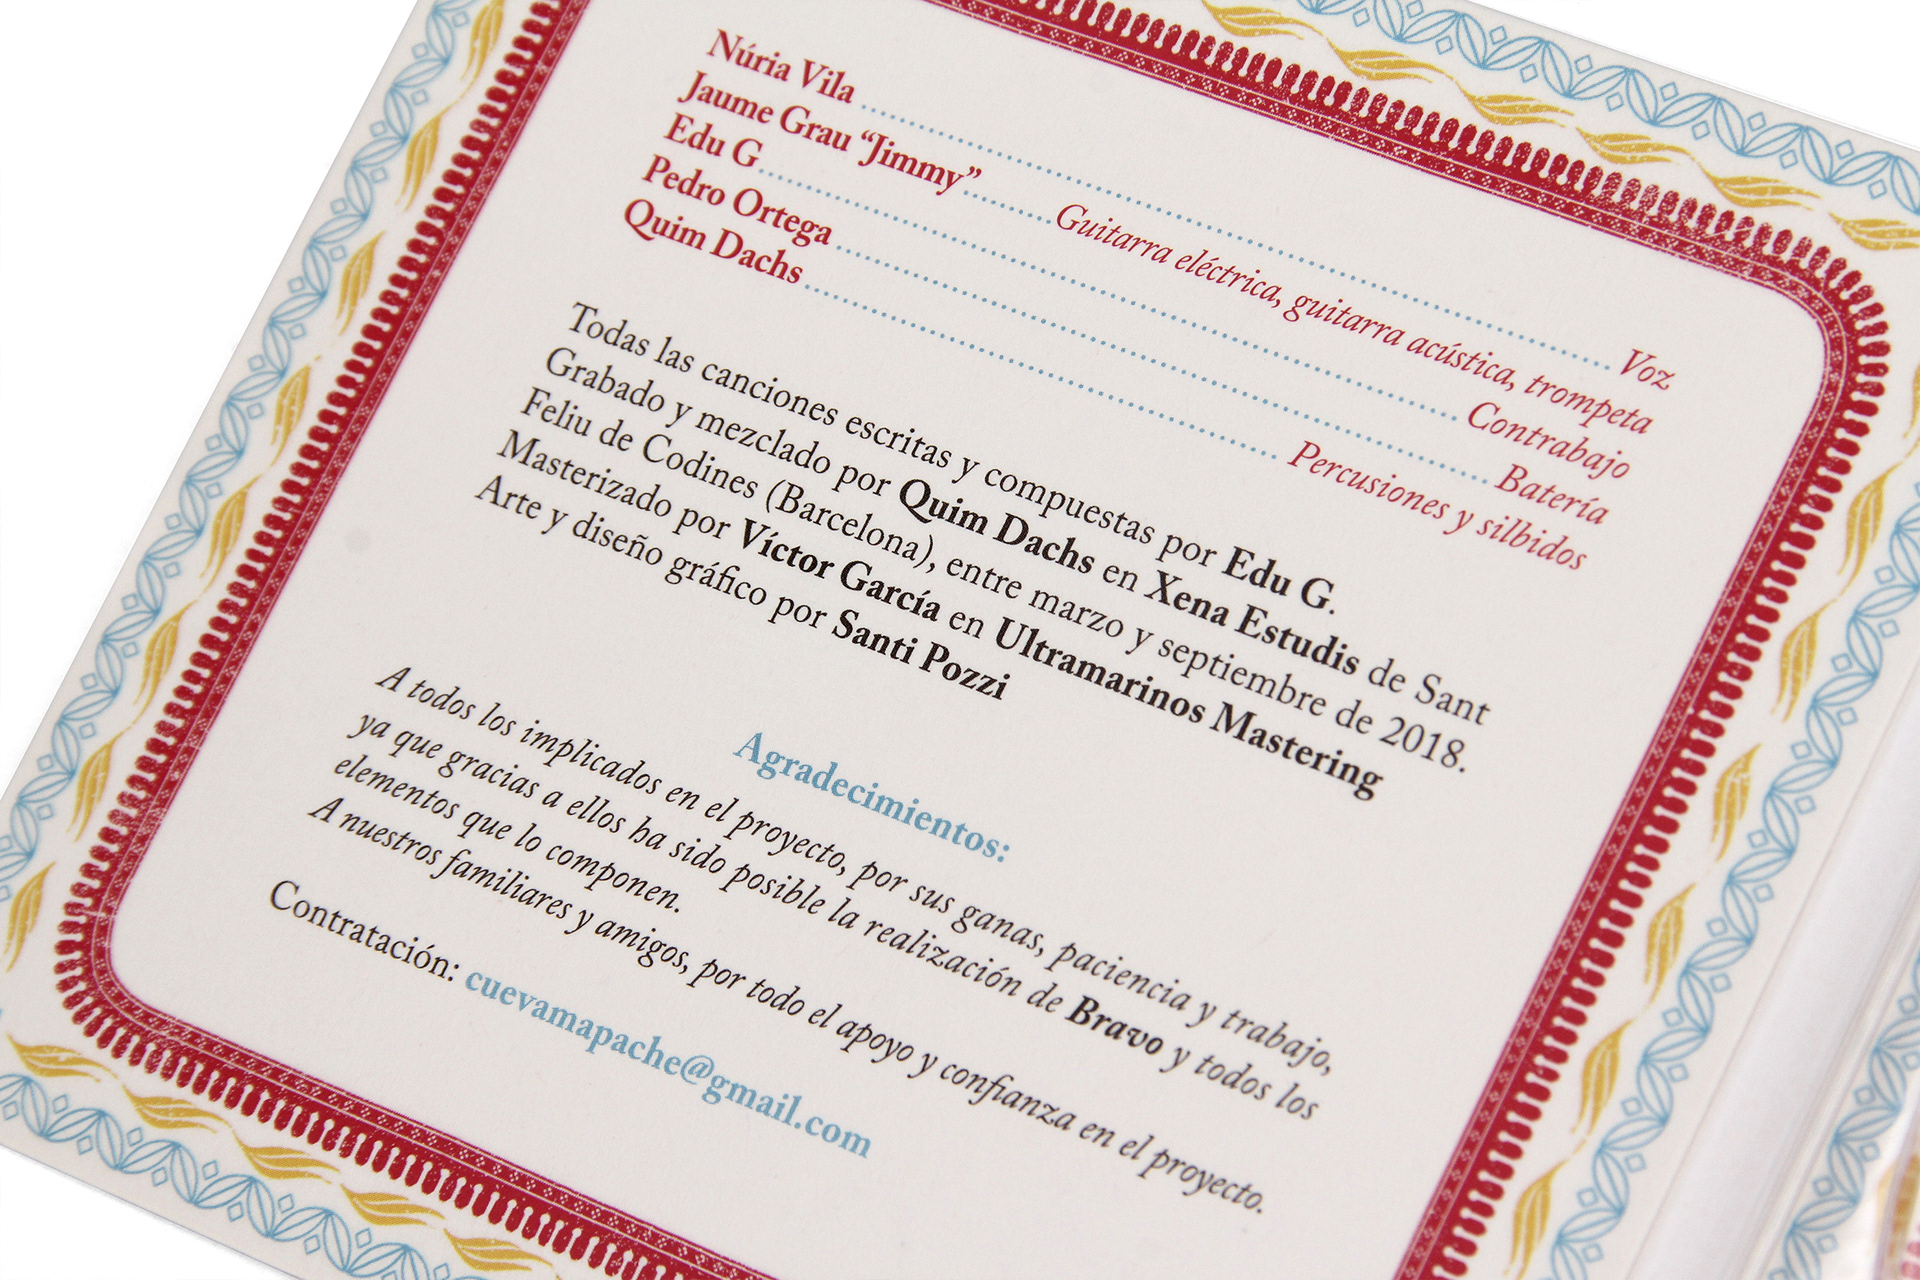 Núria Vila ........ Voz
Jaume Grau “Jimmy” ........ Guitarra eléctrica, guitarra acústica, trompeta
Edu G. ........ Contrabajo
Pedro Ortega ........ Batería
Quim Dachs ........ Percusiones y silbidos
Todas las canciones escritas y compuestas por Edu G.
Grabado y mezclado por Quim Dachs en Xena Estudis de Sant
Feliu de Codines (Barcelona), entre marzo y septiembre de 2018.
Masterizado por Víctor García en Ultramarinos Mastering
Arte y diseño gráfico por Santi Pozzi
Agradecimientos:
A todos los implicados en el proyecto, por sus ganas, paciencia y trabajo,
ya que gracias a ellos ha sido posible la realización de Bravo y todos los
elementos que lo componen.
A nuestros familiares y amigos, por todo el apoyo y confianza en el proyecto.
Contratación: cuevamapache@gmail.com